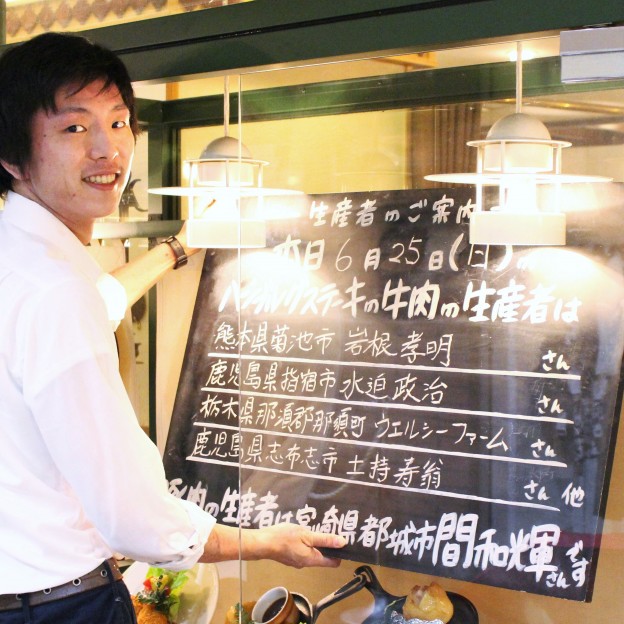 生産者のご案内
本日6月25日(日)の
ハラミステーキの牛肉の生産者は
熊本県菊池市 岩根孝明 さん
鹿児島県指宿市 水迫政治 さん
栃木県那須郡那須町 ウェルシーファーム さん
鹿児島県志布志市 土持寿翁 さん 他
豚肉の生産者は宮崎県都城市 間和輝さんです